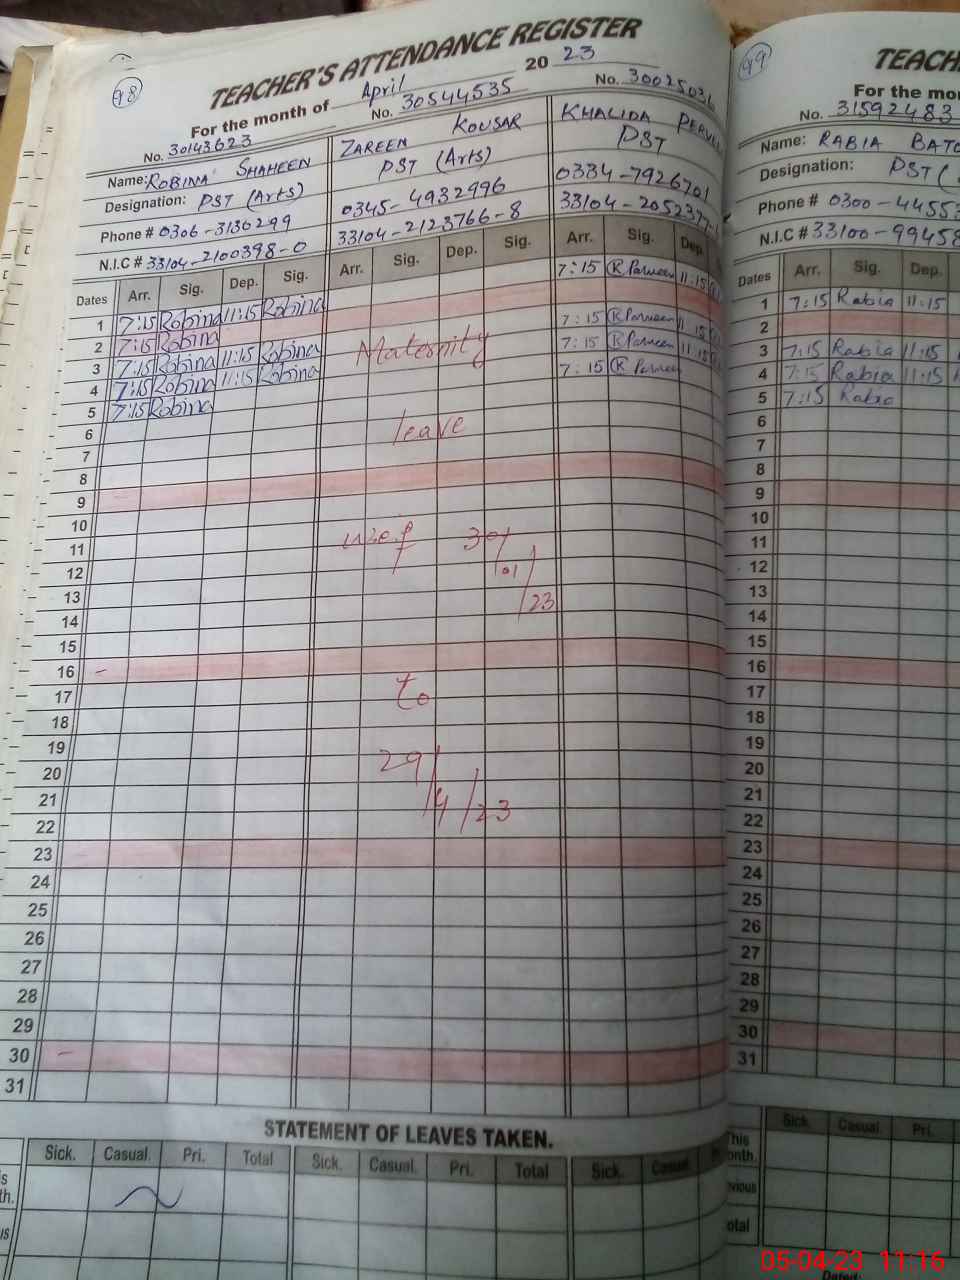 98
TEACHER'S ATTENDANCE REGISTER
For the month of April 20 23
No. 30143623 No. 30544535 No.
Name: ROBINA SHAHEEN ZAREEN KOUSAR KHALIDA
Designation: PST (Arts) PST (Arts) PST
Phone # 0306-3130299 0345-4932996 0334-7926701
N.I.C # 33104-2100398-0 33104-2123766-8 33104-205237
Dates Arr. Sig. Dep. Sig. Arr. Sig. Dep. Sig. Arr. Sig. Dep.
1 7:15 Robina 11:15 Robina 7:15 R Parveen 11:15
2 7:15 Robina
3 7:15 Robina 11:15 Robina Maternity 7:15 R Parveen 11:15
4 7:15 Robina 11:15 Robina 7:15 R Parveen 11:15
5 7:15 Robina 7:15 R Parveen
6 leave
7
8
9
10
11 w.e.f 30/01/23
12
13
14
15
16
17 to
18
19
20 29/4/23
21
22
23
24
25
26
27
28
29
30
31
STATEMENT OF LEAVES TAKEN.
Sick. Casual. Pri. Total Sick. Casual. Pri. Total Sick. Casual
99
TEACH
For the mon
No. 31592483
Name: RABIA BATO
Designation: PST (
Phone # 0300-44553
N.I.C # 33100-99458
Dates Arr. Sig. Dep.
1 7:15 Rabia 11:15
2
3 7:15 Rabia 11:15
4 7:15 Rabia 11:15
5 7:15 Rabia
6
7
8
9
10
11
12
13
14
15
16
17
18
19
20
21
22
23
24
25
26
27
28
29
30
31
Sick. Casual. Pri.
This
onth.
vious
otal
Dated:
05-04-23 11:16